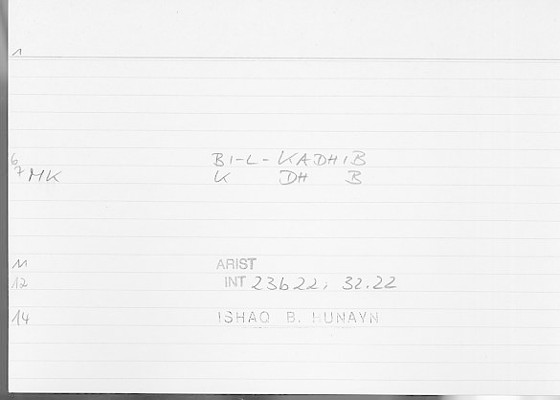 1
6 BI-L-KADHIB
7 MK K DH B
11 ARIST
12 INT 23b22, 32.22
14 ISHAQ B. HUNAYN